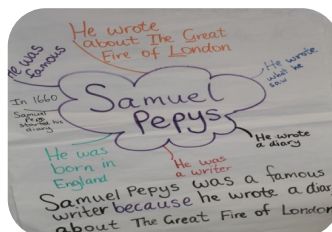 He wrote
about The Great
Fire of London
He was
famous
He wrote
what he
saw
In 1660
Samuel
Pepys
started his
diary
Samuel
Pepys
He wrote
a diary
He was
born in
England
He was
a writer
Samuel Pepys was a famous
writer because he wrote a diary
about The Great Fire of London